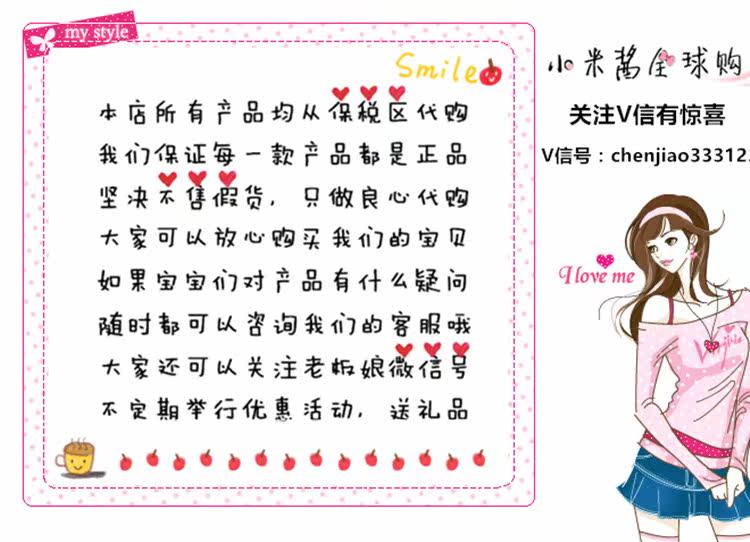 my style
Smile
本店所有产品均从保税区代购
我们保证每一款产品都是正品
坚决不售假货，只做良心代购
大家可以放心购买我们的宝贝
如果宝宝们对产品有什么疑问
随时都可以咨询我们的客服哦
大家还可以关注老板娘微信号
不定期举行优惠活动，送礼品
小米酱全球购
关注V信有惊喜
V信号：chenjiao33312
I love me